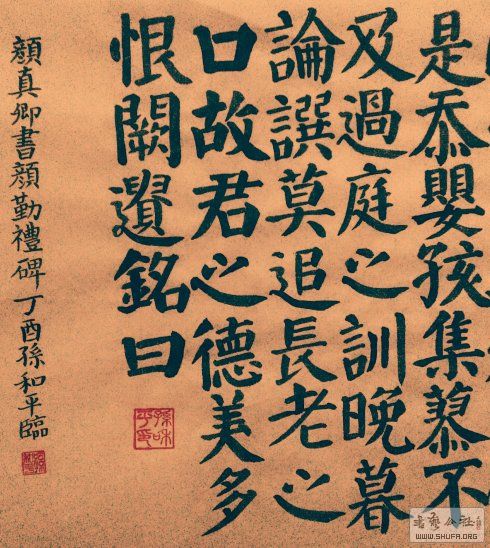 是忝嬰孩集蓼不
及過庭之訓晚暮
論譔莫追長老之
口故君之德美多
恨闕遺銘曰
顏真卿書顏勤禮碑丁酉孫和平臨
孫和平印
書藝公社
WWW.SHUFA.ORG